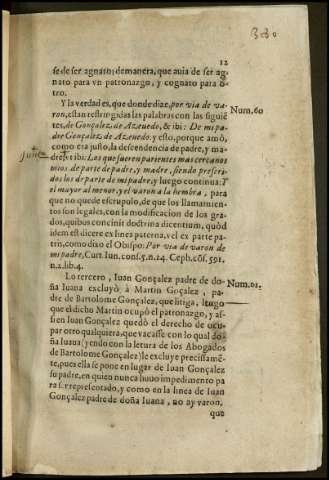 380
12
se de ser agnato; demanera, que auia de ser ag-
nato para vn patronazgo, y cognato para o-
tro.
Y la verdad es, que donde dize, por via de va-
ron, estan restringadas las palabras con las siguiẽ
tes, de Gonçalez de Azeuedo, & ibi: De mi pa-
dre Gonçalez de Azeuedo; y esto, porque amò,
como era justo, la descendencia de padre, y ma-
dre, vt ibi: Los que fueren parientes mas cercanos
mios de parte de padre, y madre, siendo preferi-
dos los de parte de mi padre, y luego continua:
el mayor al menor, y el varon a la hembra, para
que no quede escrupulo, de que los llamamien-
tos son legales, con la modificacion de los gra-
dos, quibus concinit doctrina dicentium, quòd
idem est dicere ex linea paterna, vel ex parte pa-
tris, como dixo el Obispo: Por via de varon de
mi padre, Curt. Iun. cons. 5. n. 24. Ceph. cõs. 591.
n. 2. lib. 4.
Lo tercero, Iuan Gonçalez padre de do-
ña Iuana excluyò à Martin Gõçalez, pa-
dre de Bartolome Gonçalez, que litiga, luego
que el dicho Martin ocupò el patronazgo, y as-
si en Iuan Gonçalez quedò el derecho de ocu-
par otro qualquiera, que vacasse con lo qual do-
ña Iuana (yendo con la letura de los Abogados
de Bartolome Gonçalez) le excluye precissamẽ-
te, pues ella se pone en lugar de Iuan Gonçalez
su padre, en quien nunca huuo impedimento pa
ra ser representado, y como en la linea de Iuan
Gonçalez padre de doña Iuana, no ay varon,
que
Num. 60